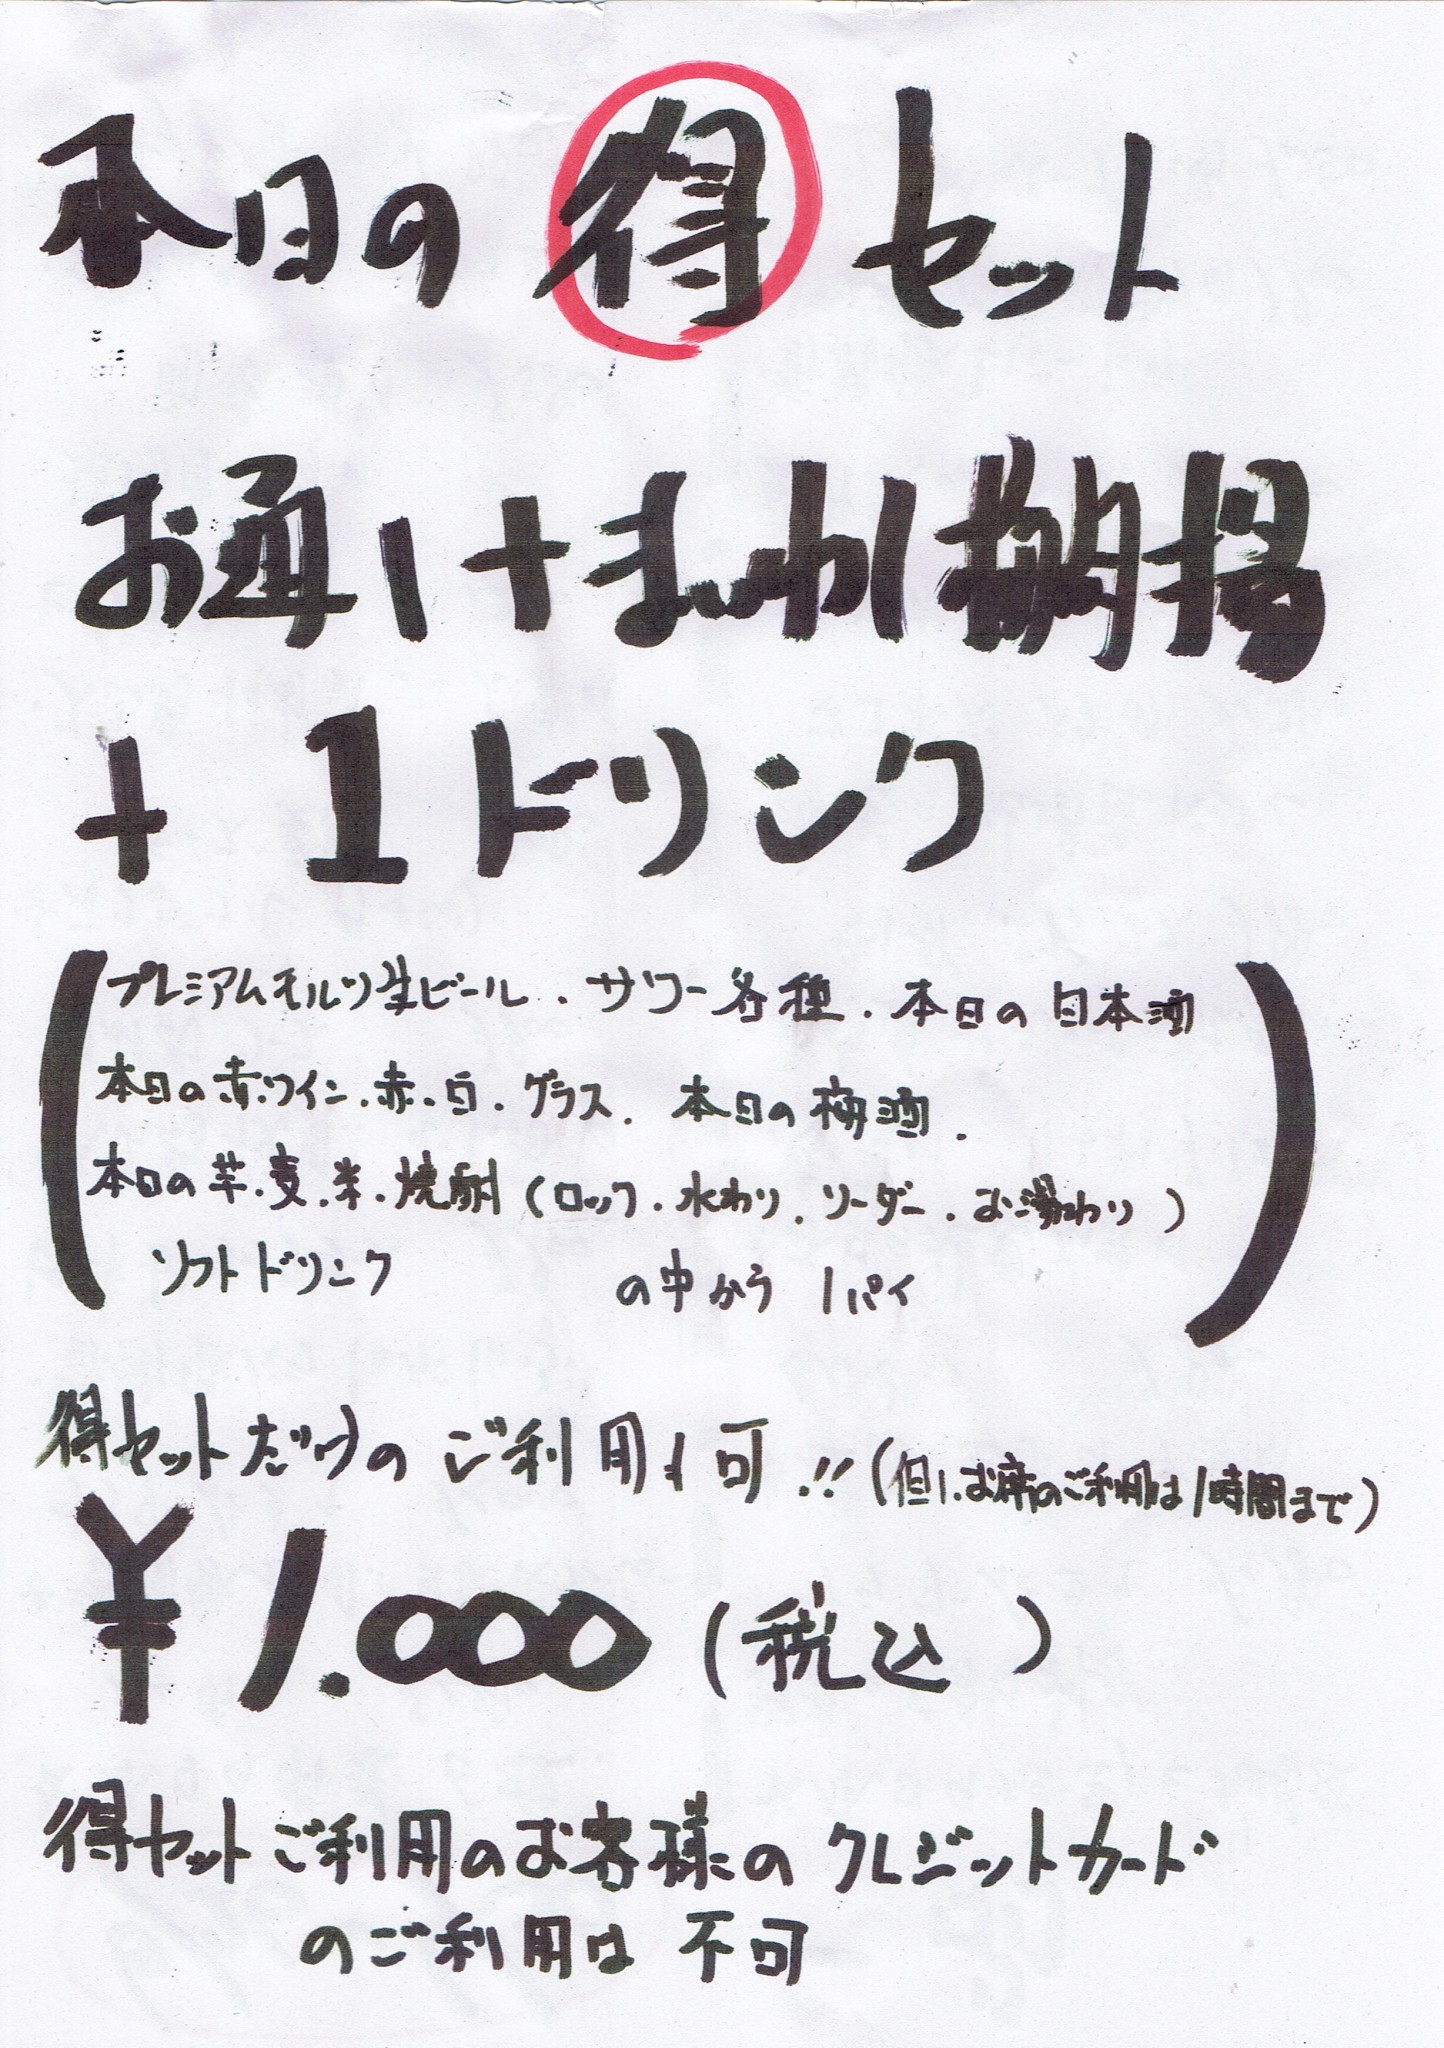 本日の得セット
お通し+まいわし揚
+1ドリンク
(プレミアムモルツ生ビール.サワー各種.本日の日本酒
本日の赤ワイン.赤.白.グラス.本日の梅酒.
本日の芋.麦.米.焼酎(ロック.水わり.ソーダー.お湯わり)
ソフトドリンク の中から1パイ)
得セットだけのご利用も可!!(但し.お席のご利用は1時間まで)
¥1.000(税込)
得セットご利用のお客様のクレジットカード
のご利用は不可